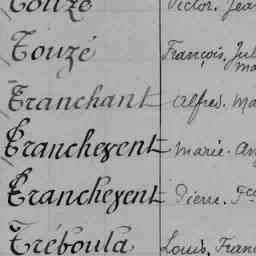 Touzé Victor. Jea
Touzé François. Jul
Ma
Tranchant Alfred. Ma
Tranchevent Marie. An
Tranchevent Pierre. Fco
Tréboula Louis, Fran